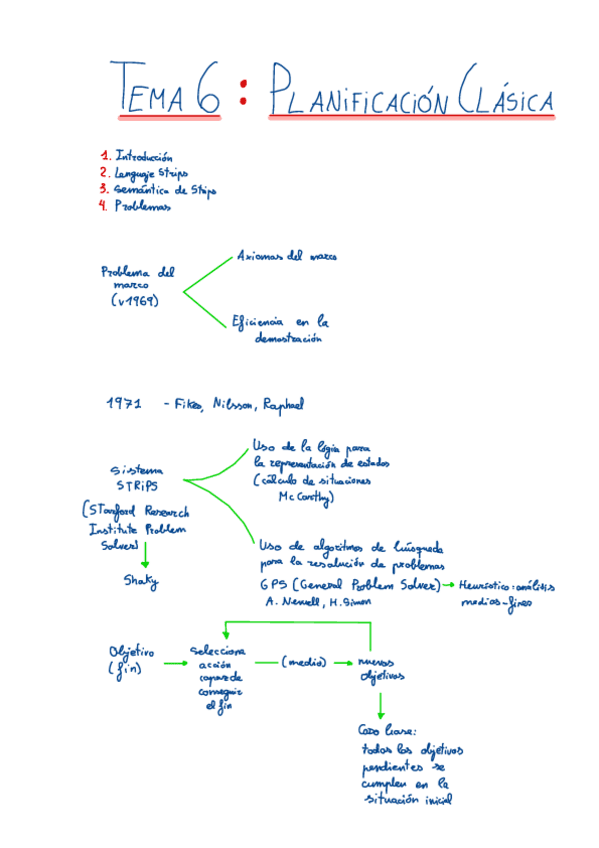 TEMA 6 : PLANIFICACIÓN CLÁSICA
1. Introducción
2. Lenguaje Strips
3. Semántica de Strips
4. Problemas
Axiomas del marco
Problema del
marco
(v1969)
Eficiencia en la
demostración
1971 - Fikes, Nilsson, Raphael
Uso de la lógica para
la representación de estados
(cálculo de situaciones
McCarthy)
Sistema
STRIPS
(STanford Research
Institute Problem
Solver)
Shaky
Uso de algoritmos de búsqueda
para la resolución de problemas
GPS (General Problem Solver) → Heurístico: análisis
medios-fines
A. Newell, H. Simon
Objetivo
(fin)
Selecciona
acción
capaz de
conseguir
el fin
(medio)
nuevos
objetivos
Caso base:
todos los objetivos
pendientes se
cumplen en la
situación inicial